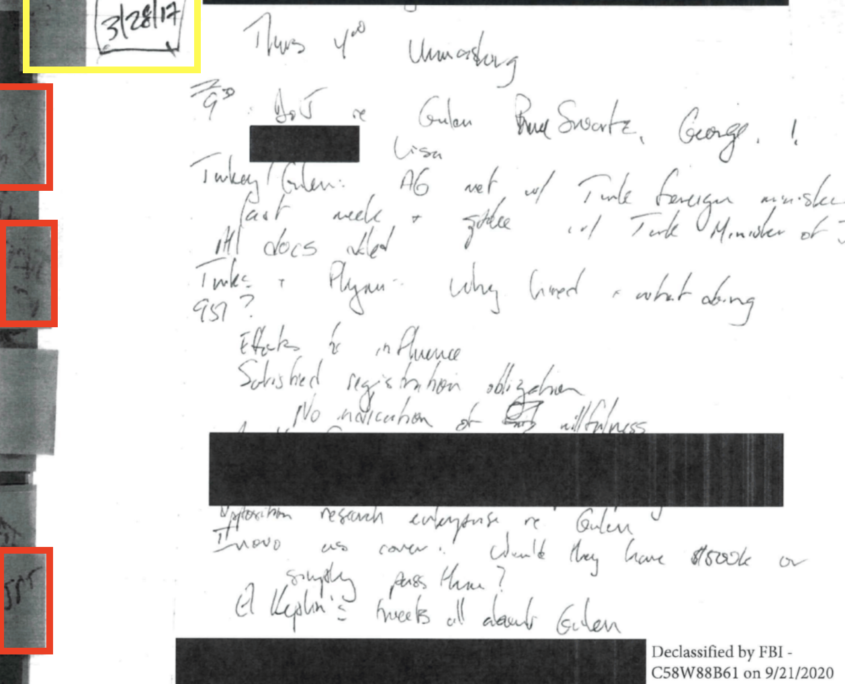 3/28/17
Thurs 4⁰⁰ Unmasking
9³⁰ DoJ re Gulen Bruce Swartz, George, !
Lisa
Turkey/Gulen: AG met w/ Turk foreign minister
last week + w/ Turk Minister of J
All docs
+ Flynn - why hired + what doing
951?
Efforts to influence
Satisfied registration obligation
No indication of willfulness
Opposition research enterprise re Gulen
Inovo as cover. Would they have $500k or
simply pass thru?
tweets all about Gulen
Declassified by FBI -
C58W88B61 on 9/21/2020